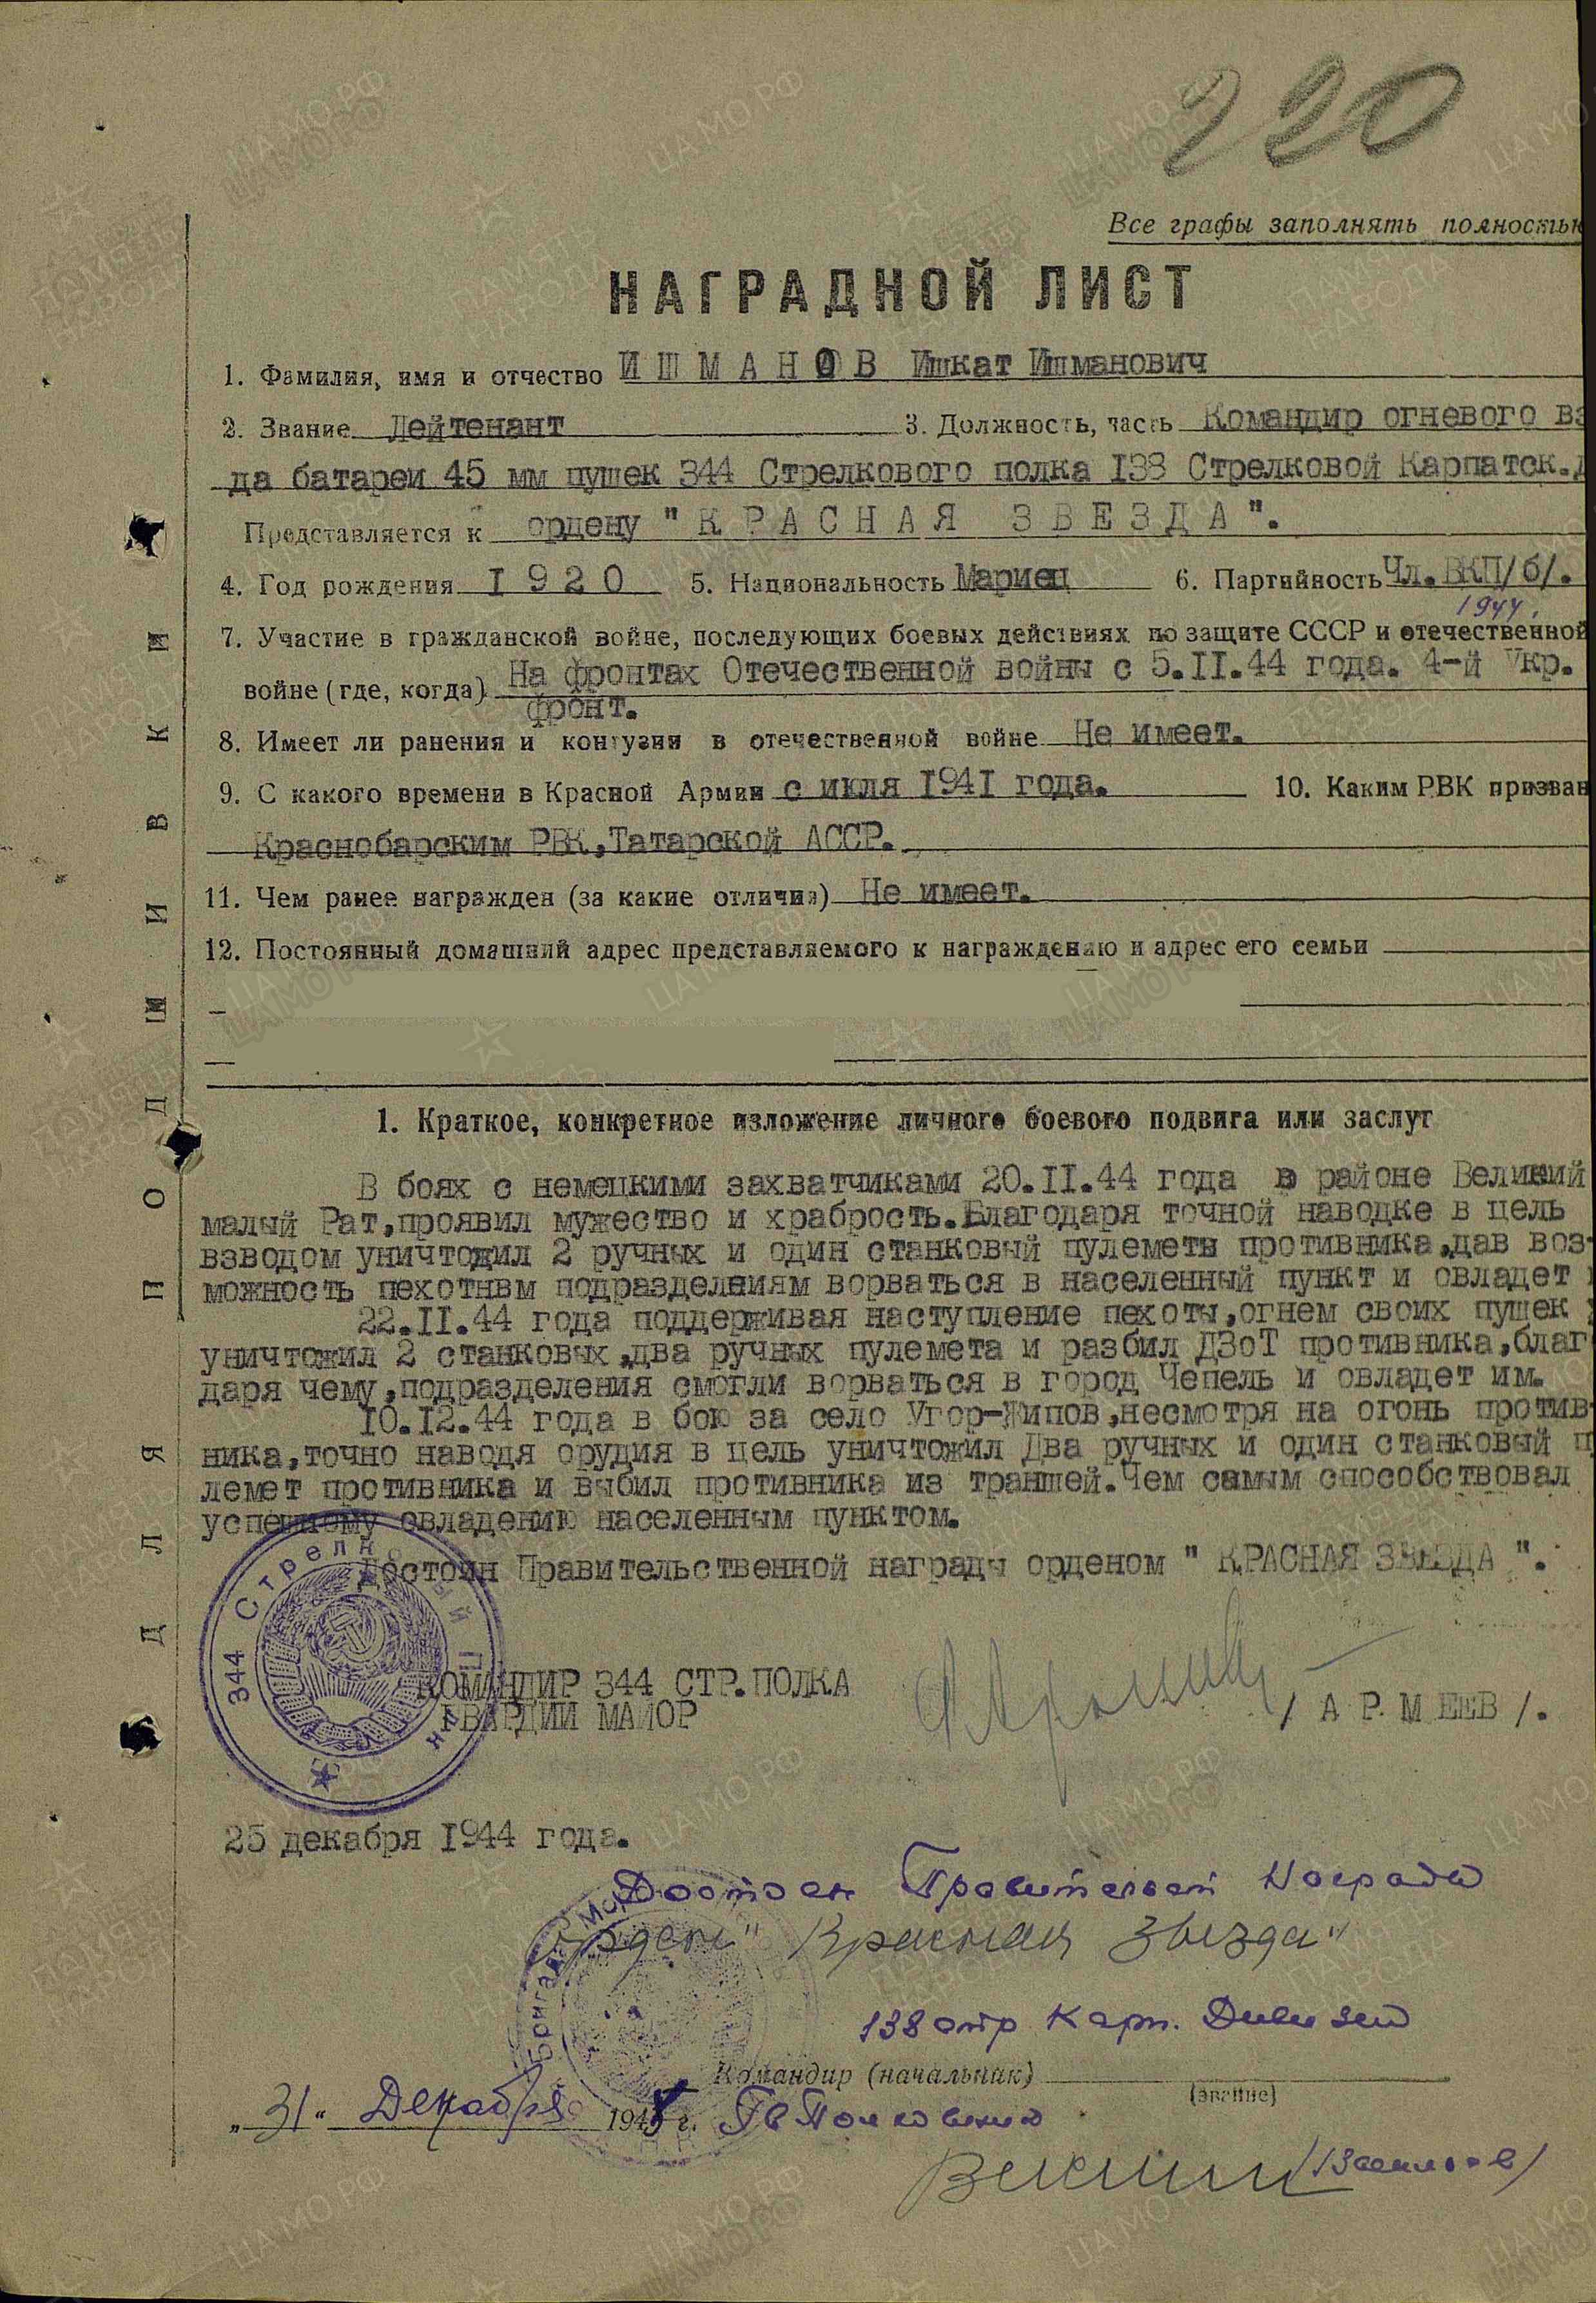 220
Все графы заполнять полностью
НАГРАДНОЙ ЛИСТ
1. Фамилия, имя и отчество И Ш М А Н О В Ишкат Ишманович
2. Звание Лейтенант 3. Должность, часть Командир огневого вз
да батареи 45 мм пушек 344 Стрелкового полка 138 Стрелковой Карпатск.д
Представляется к ордену "К Р А С Н А Я З В Е З Д А".
4. Год рождения I 9 2 0 5. Национальность Мариец 6. Партийность Чл.ВКП/б/.
1944.
7. Участие в гражданской войне, последующих боевых действиях по защите СССР и отечественной
войне (где, когда) На фронтах Отечественной войны с 5.II.44 года. 4-й Укр.
фронт.
8. Имеет ли ранения и контузии в отечественной войне Не имеет.
9. С какого времени в Красной Армии с июля I94I года. 10. Каким РВК призван
Краснобарским РВК,Татарской АССР.
11. Чем ранее награжден (за какие отличия) Не имеет.
12. Постоянный домашний адрес представляемого к награждению и адрес его семьи
1. Краткое, конкретное изложение личного боевого подвига или заслуг
В боях с немецкими захватчиками 20.II.44 года в районе Великий
малый Рат,проявил мужество и храбрость.Благодаря точной наводке в цель
взводом уничтожил 2 ручных и один станковый пулеметы противника,дав воз-
можность пехотнвм подразделниям ворваться в населенный пункт и овладет
22.II.44 года поддерживая наступление пехоты,огнем своих пушек
уничтожил 2 станковых,два ручных пулемета и разбил ДЗоТ противника,благ
даря чему,подразделения смогли ворваться в город Чепель и овладет им.
I0.I2.44 года в бою за село Угор-Жипов,несмотря на огонь против-
ника,точно наводя орудия в цель уничтожил Два ручных и один станковый п
лемет противника и выбил противника из траншей.Чем самым способствовал
успешному овладению населенным пунктом.
Достоин Правительственной награды орденом " КРАСНАЯ ЗВЕЗДА ".
344 Стрелковый П
КОМАНДИР 344 СТР.ПОЛКА
ГВАРДИИ МАЙОР / А Р М ЕЕВ /.
25 декабря I944 года.
Достоен Правительст Награды
Орден "Красная Звезда"
138 стр Карп. Дивизии
Командир (начальник)
(звание)
„31" Декабря 1944 г. Гв Полковник
/Васильев/
ДЛЯ ПОДШИВКИ